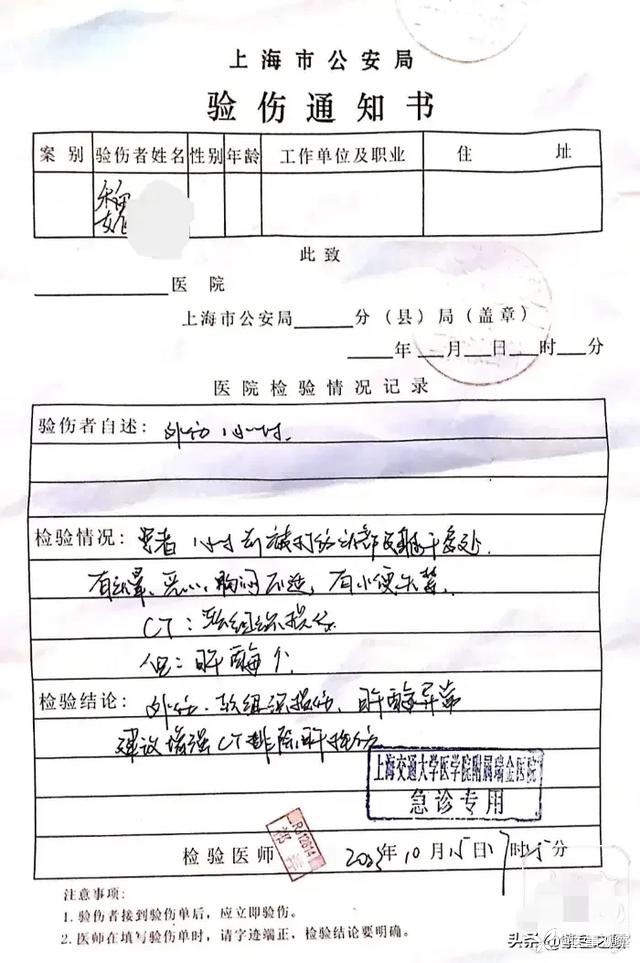 上海市公安局
验伤通知书
案别 验伤者姓名 性别 年龄 工作单位及职业 住址
此致
医院
上海市公安局 分(县)局(盖章)
年 月 日 时 分
医院检验情况记录
验伤者自述: 外伤1小时.
检验情况: 患者1小时前被打伤头部及躯干多处.
有头晕、恶心、胸闷不适, 有小便失禁.
CT: 软组织损伤.
肝酶个
检验结论: 外伤. 软组织损伤, 肝酶异常
建议增强CT排除肝损伤
上海交通大学医学院附属瑞金医院
急诊专用
RJ12614
检验医师 2023年10月15日7时15分
注意事项:
1. 验伤者接到验伤单后，应立即验伤。
2. 医师在填写验伤单时，请字迹端正，检验结论要明确。
头条